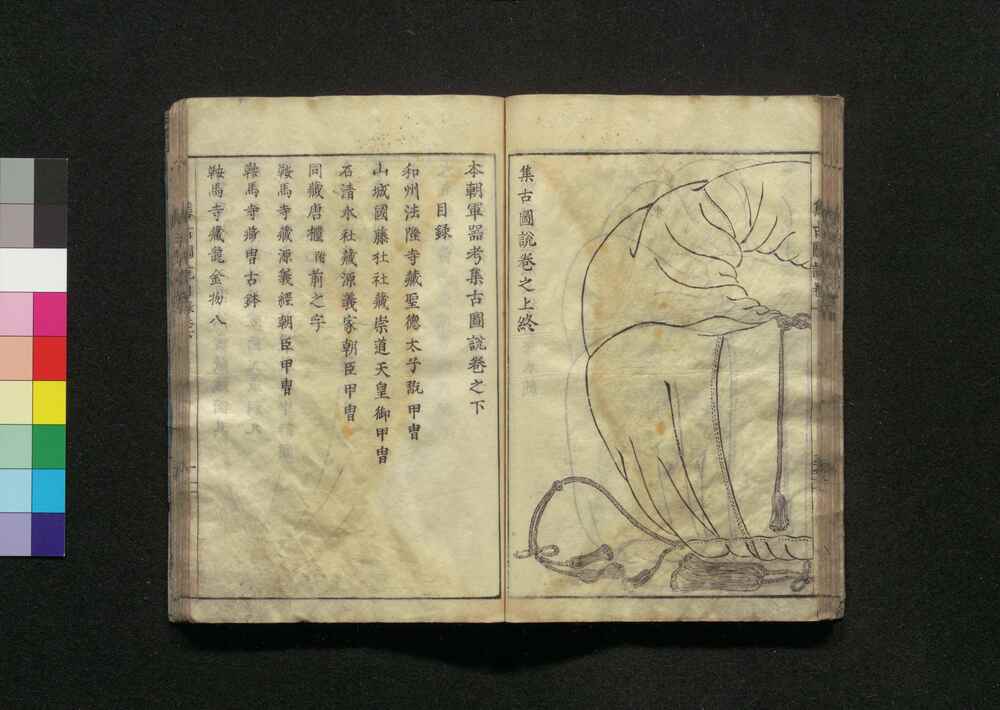 集古圖說卷之上終
本朝軍器考集古圖說卷之下
目錄
和州法隆寺藏聖德太子甲冑
山城國藤社社藏崇道天皇御甲冑
石清水社藏源義家朝臣甲冑
同藏唐櫃前之字
鞍馬寺藏源義經朝臣甲冑
鞍馬寺藏冑古鉢
鞍馬寺藏龍金物八